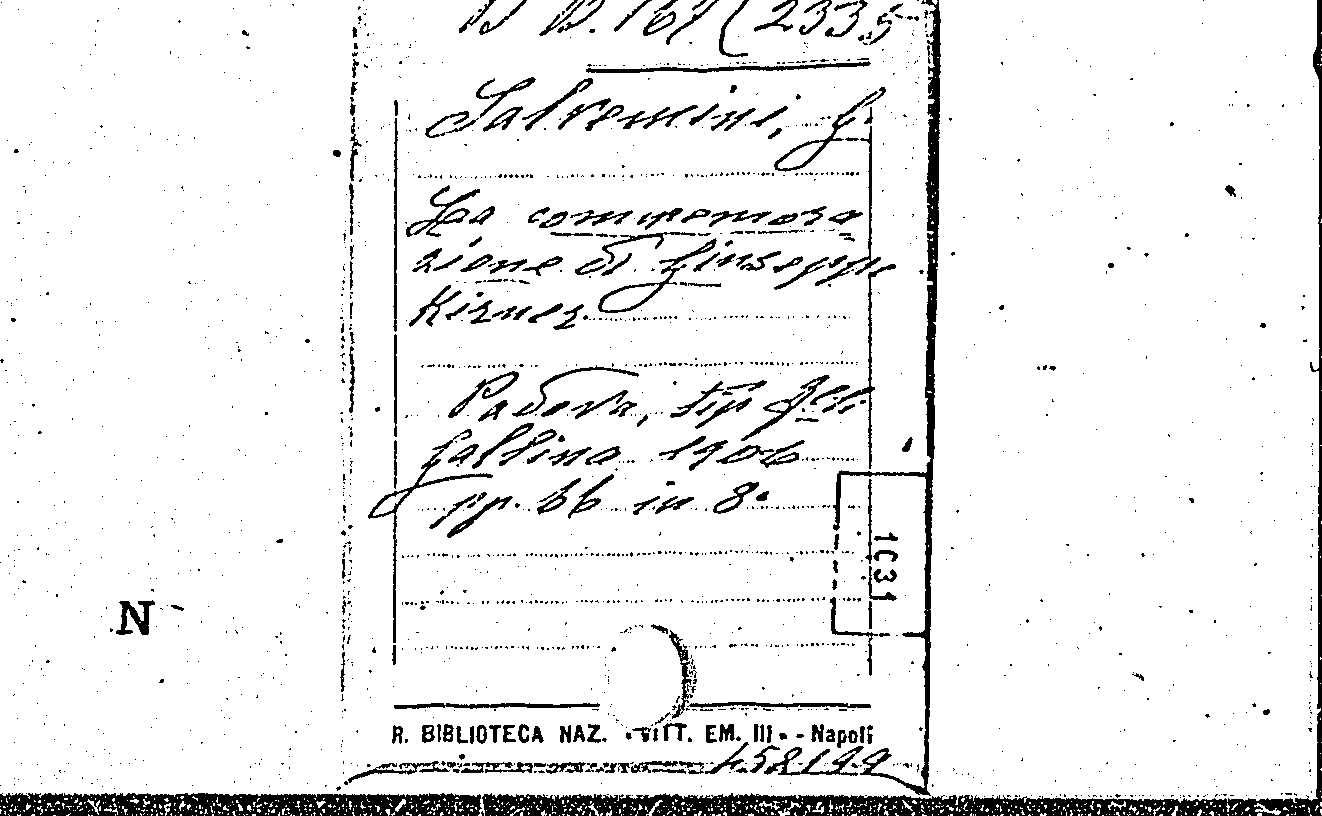 B B. 167 (2335
Salvemini, G.
La commemora
zione di Giuseppe
Kirner
Padova, tip flli
Gallina 1906
pp. 66 in 8°
1031
N
R. BIBLIOTECA NAZ. VITT. EM. III - Napoli
458199